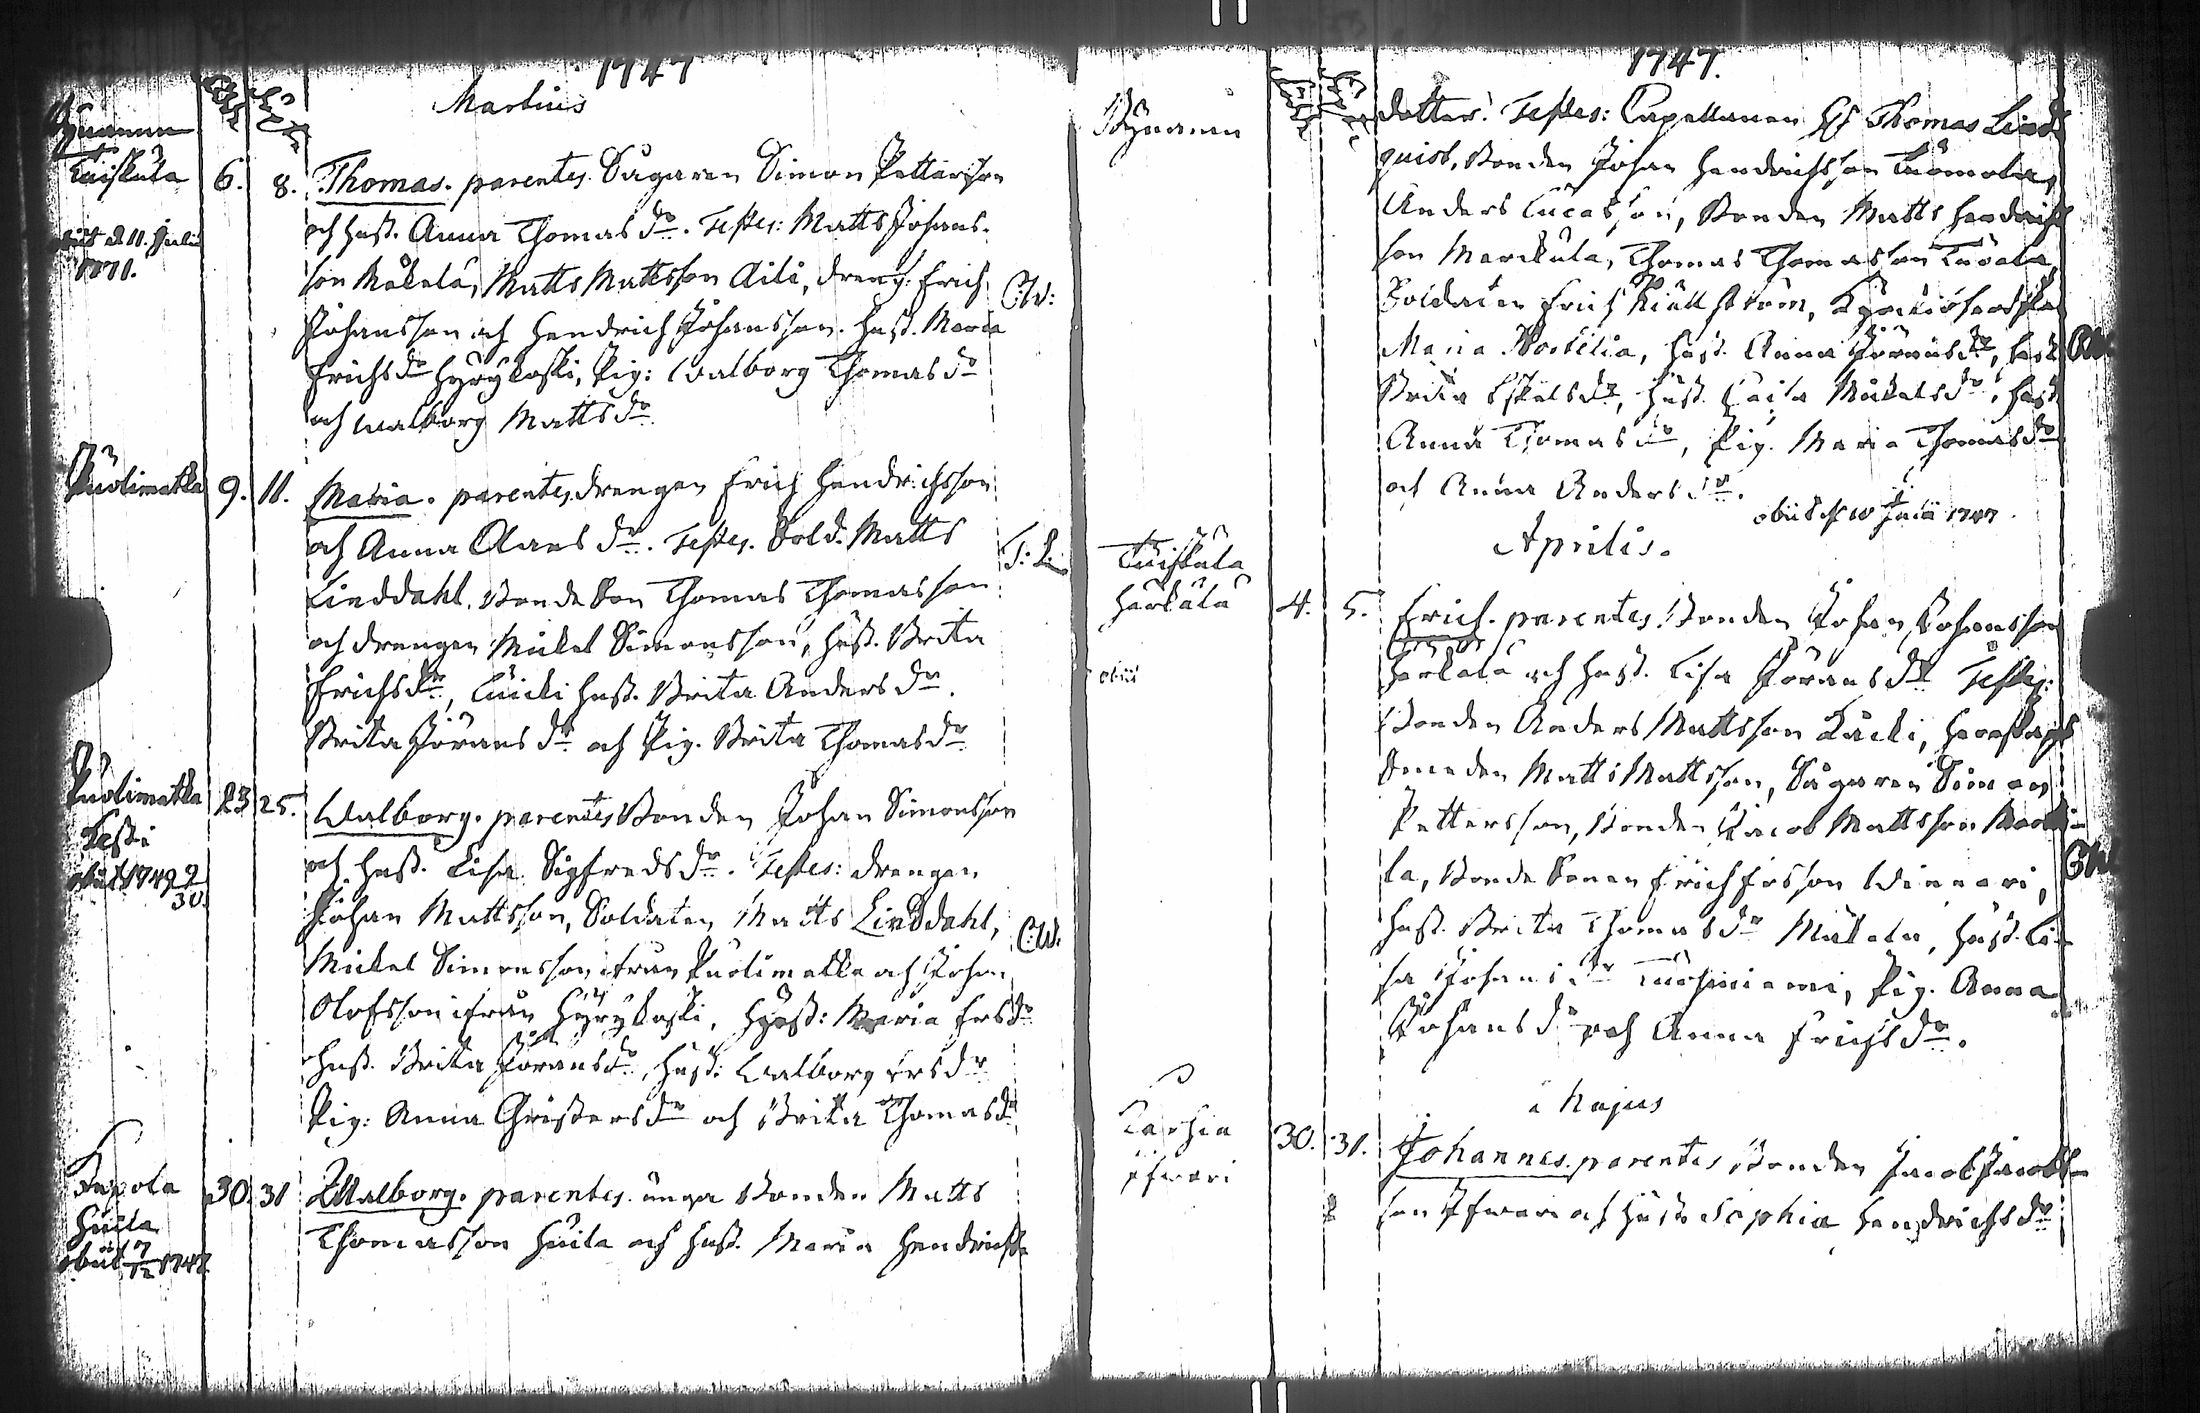 1747
Martius
Byarnen
Tuiskula
6. 8. Thomas. parentes. Sågaren Simon Pettersson
obiit d. 11. Julii
1771.
och hust. Anna Thomas dr. Testes: Matts Johans-
son Mäkelä, Matts Mattsson Aili, dreng. Erich
C:W:
Johansson och Hendrich Johansson. Hust. Maria
Erichsdr Hyrykoski, Pig: Walborg Thomasdr
och Walborg Mattsdr.
Puolimatka 9. 11. Maria. parentes, drengen Erich Hendrichsson
och Anna Olaus dr. Testes. Sold. Matts
T: L.
Linddahl. Bonde Son Thomas Thomasson
och drengen Mickel Simonsson, hust. Brita
Erichsdr, hust. Brita Anders dr.
Brita Jörans dr och Pig. Brita Thomasdr
Puolimatka
Keski
obiit 1749 9/30
23 25. Walborg. parentes Bonden Johan Simonsson
och hust. Lisa Sigfreds dr. Testes: drengen
Johan Mattsson, Soldaten Matts Linddahl,
C:W.
Mickel Simonsson ifrån Puolimatka och Johan
Olofsson ifrån Hyrykoski, Hust: Maria Ersdr
hust. Brita Joransdr, hust: Walborg Ersdr
Pig: Anna Christersdr och Brita Thomasdr
Kepola
Huila
obiit 7/12 1747
30. 31 Walborg. parentes. unga Bonden Matts
Thomasson Huila och hust. Maria Hendrichs
1747.
Byarnen
dotter. Testes: Capellanen Hr Thomas Lind-
quist, Bonden Johan Hendrichsson Tuomola,
Anders Lucasson, Bonden Matts Hendrich
son Marckula, Thomas Thomasson
Soldaten Erich Kiällström,
Maria, hust. Anna Joransdr, hust
Brita Eskelsdr, hust. Caisa Mickelsdr, hust
Anna Thomasdr, Pig. Maria Thomasdr
och Anna Anders dr.
obiit d. 10 Julii 1747
Aprilis.
Tuiskula
Härkälä
4. 5. Erich. parentes. Bonden Johan Johansson
Härkälä och hust. Lisa Jöransdr Testes:
obiit
Bonden Anders Mattsson,
Smeden Matts Mattsson, Sågaren Simon
Pettersson, Bonden Jacob Mattsson Marcku-
la, Bonde Sonen Erich Ersson,
hust. Brita Thomasdr Mäkelä, hust. Li-
sa Johansdr, Pig. Anna
Johansdr och Anna Erichsdr.
Majus
Karhia
Ifwari
30. 31. Johannes. parentes Bonden Jacob Jacobs-
son Ifwari och hust. Sophia Hendrichsdr